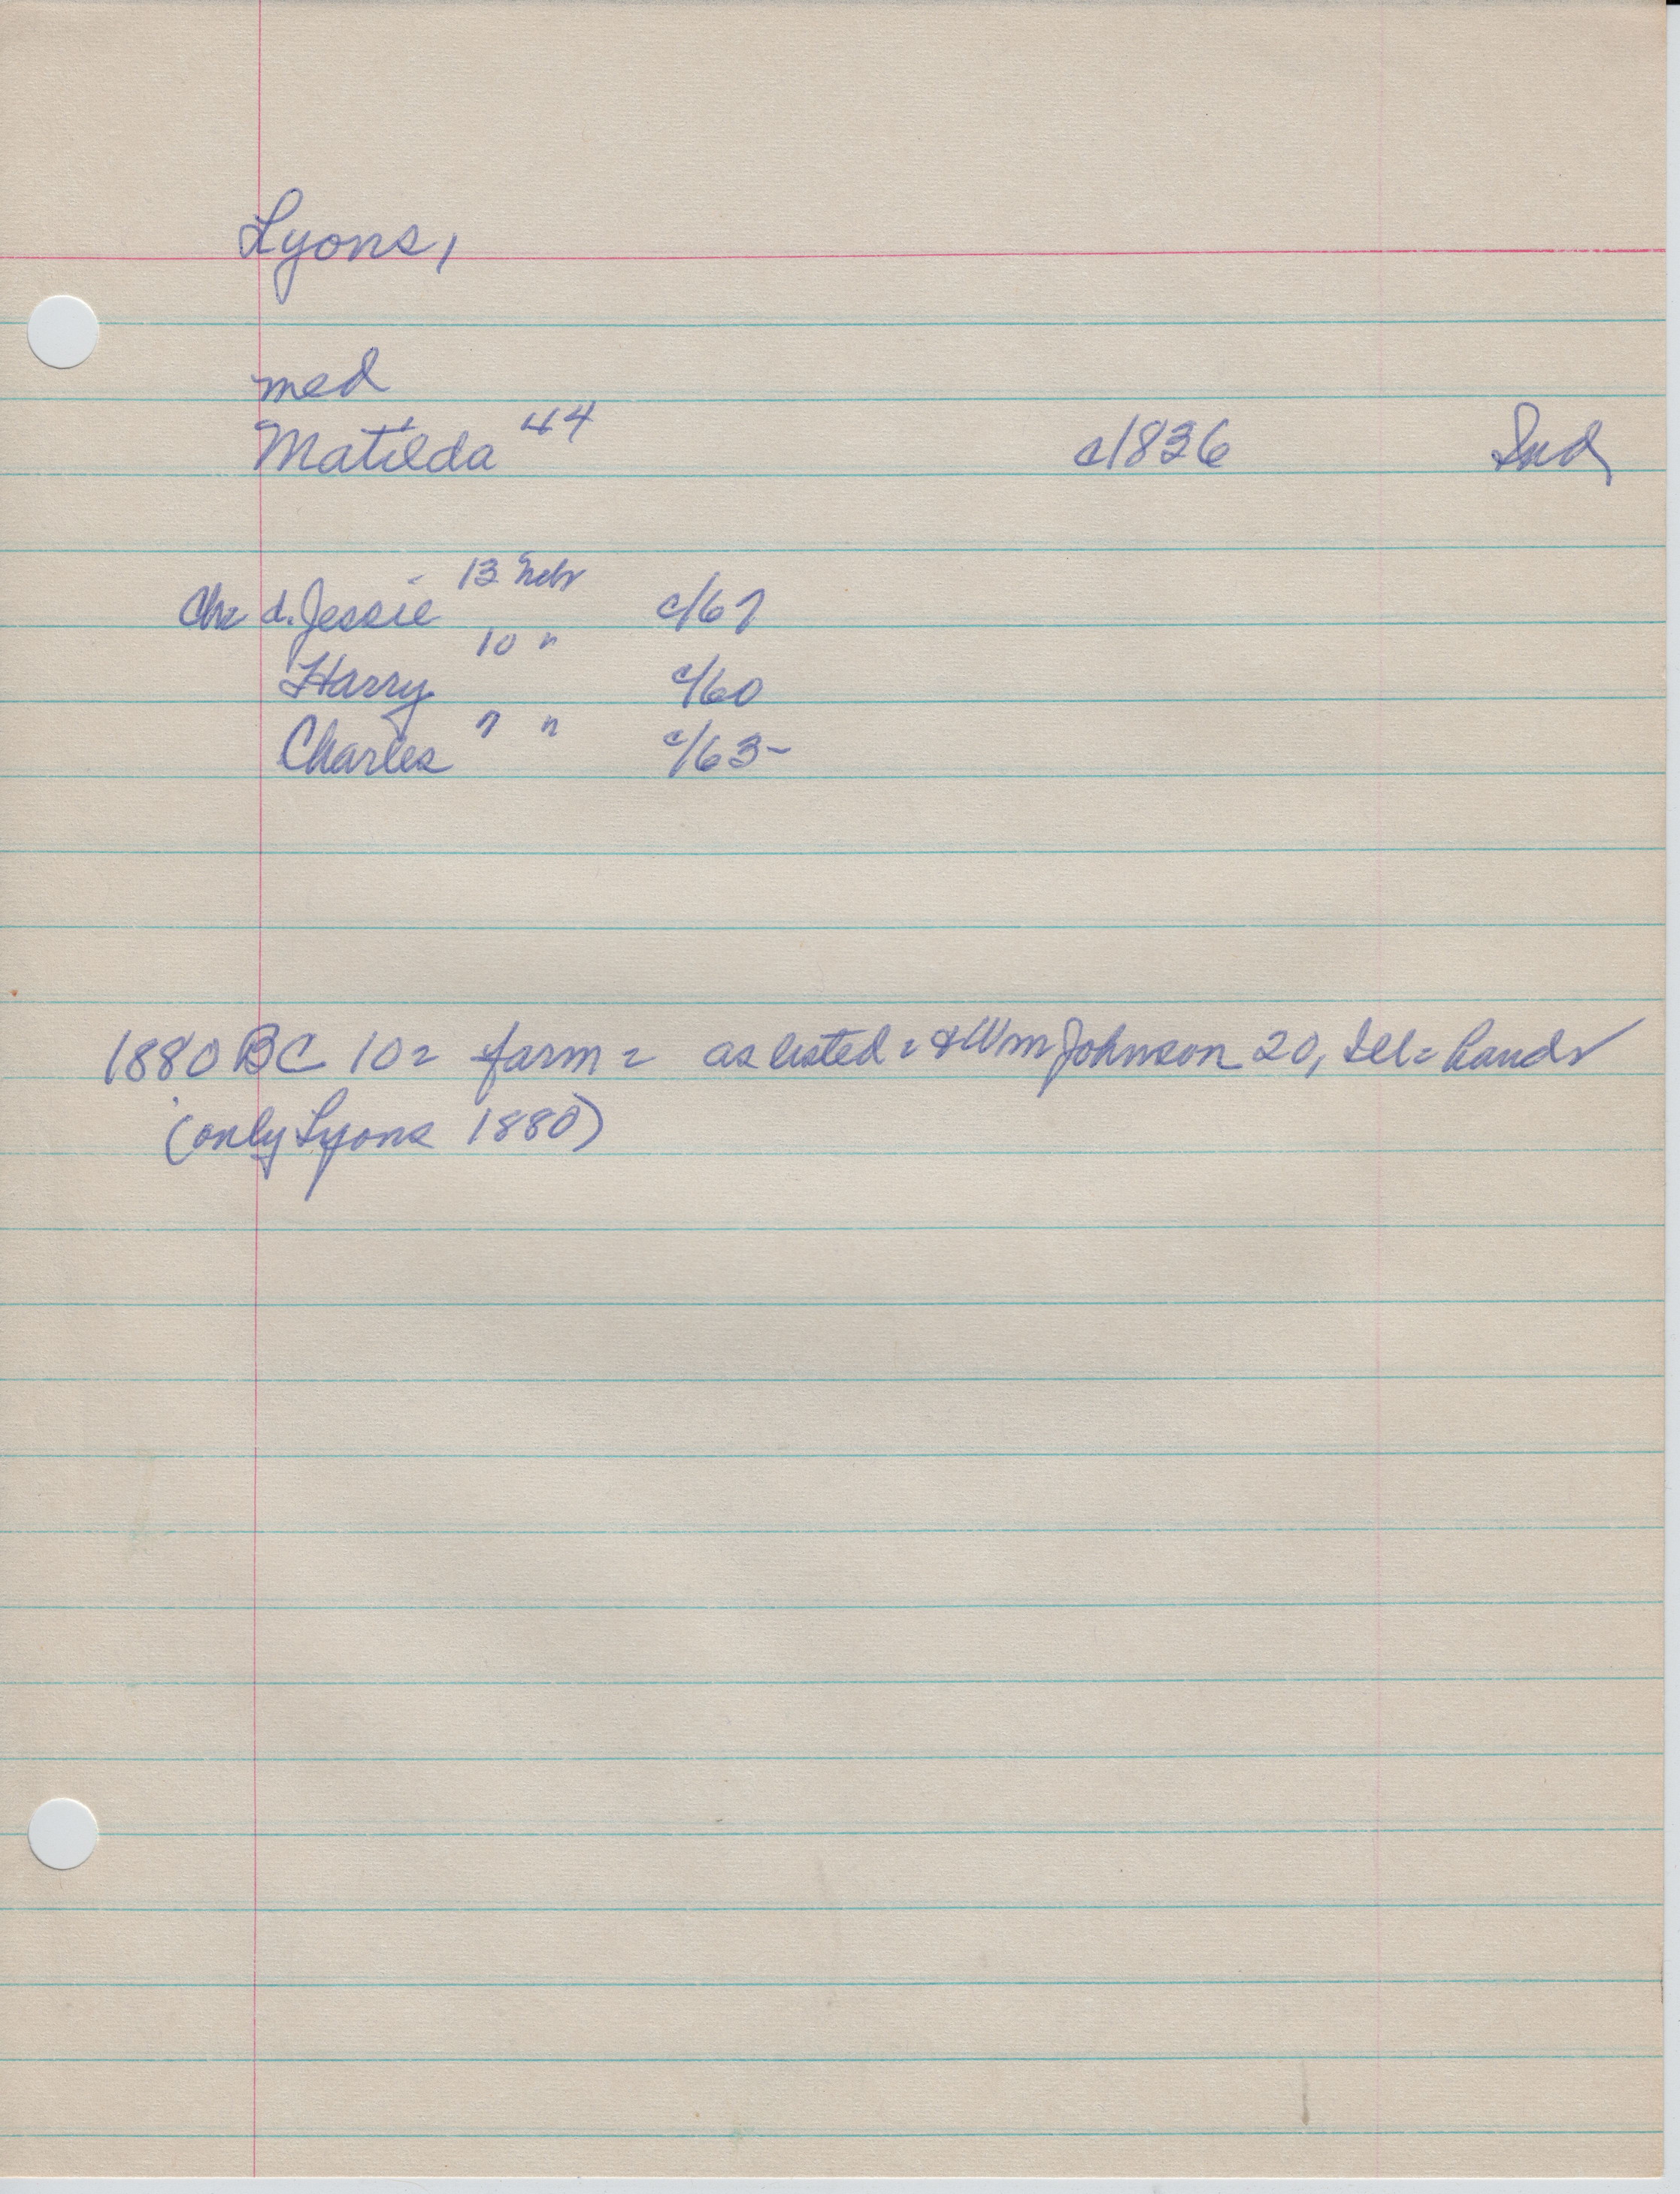 Lyons,
med
Matilda 44 c1836 Ind
Chr d. Jessie 13 Nebr c/67
Harry 10 " c/60
Charles 7 " c/63-
1880 BC 10 = farm = as listed = & Wm Johnson 20, Ill = hand
(only Lyons 1880)